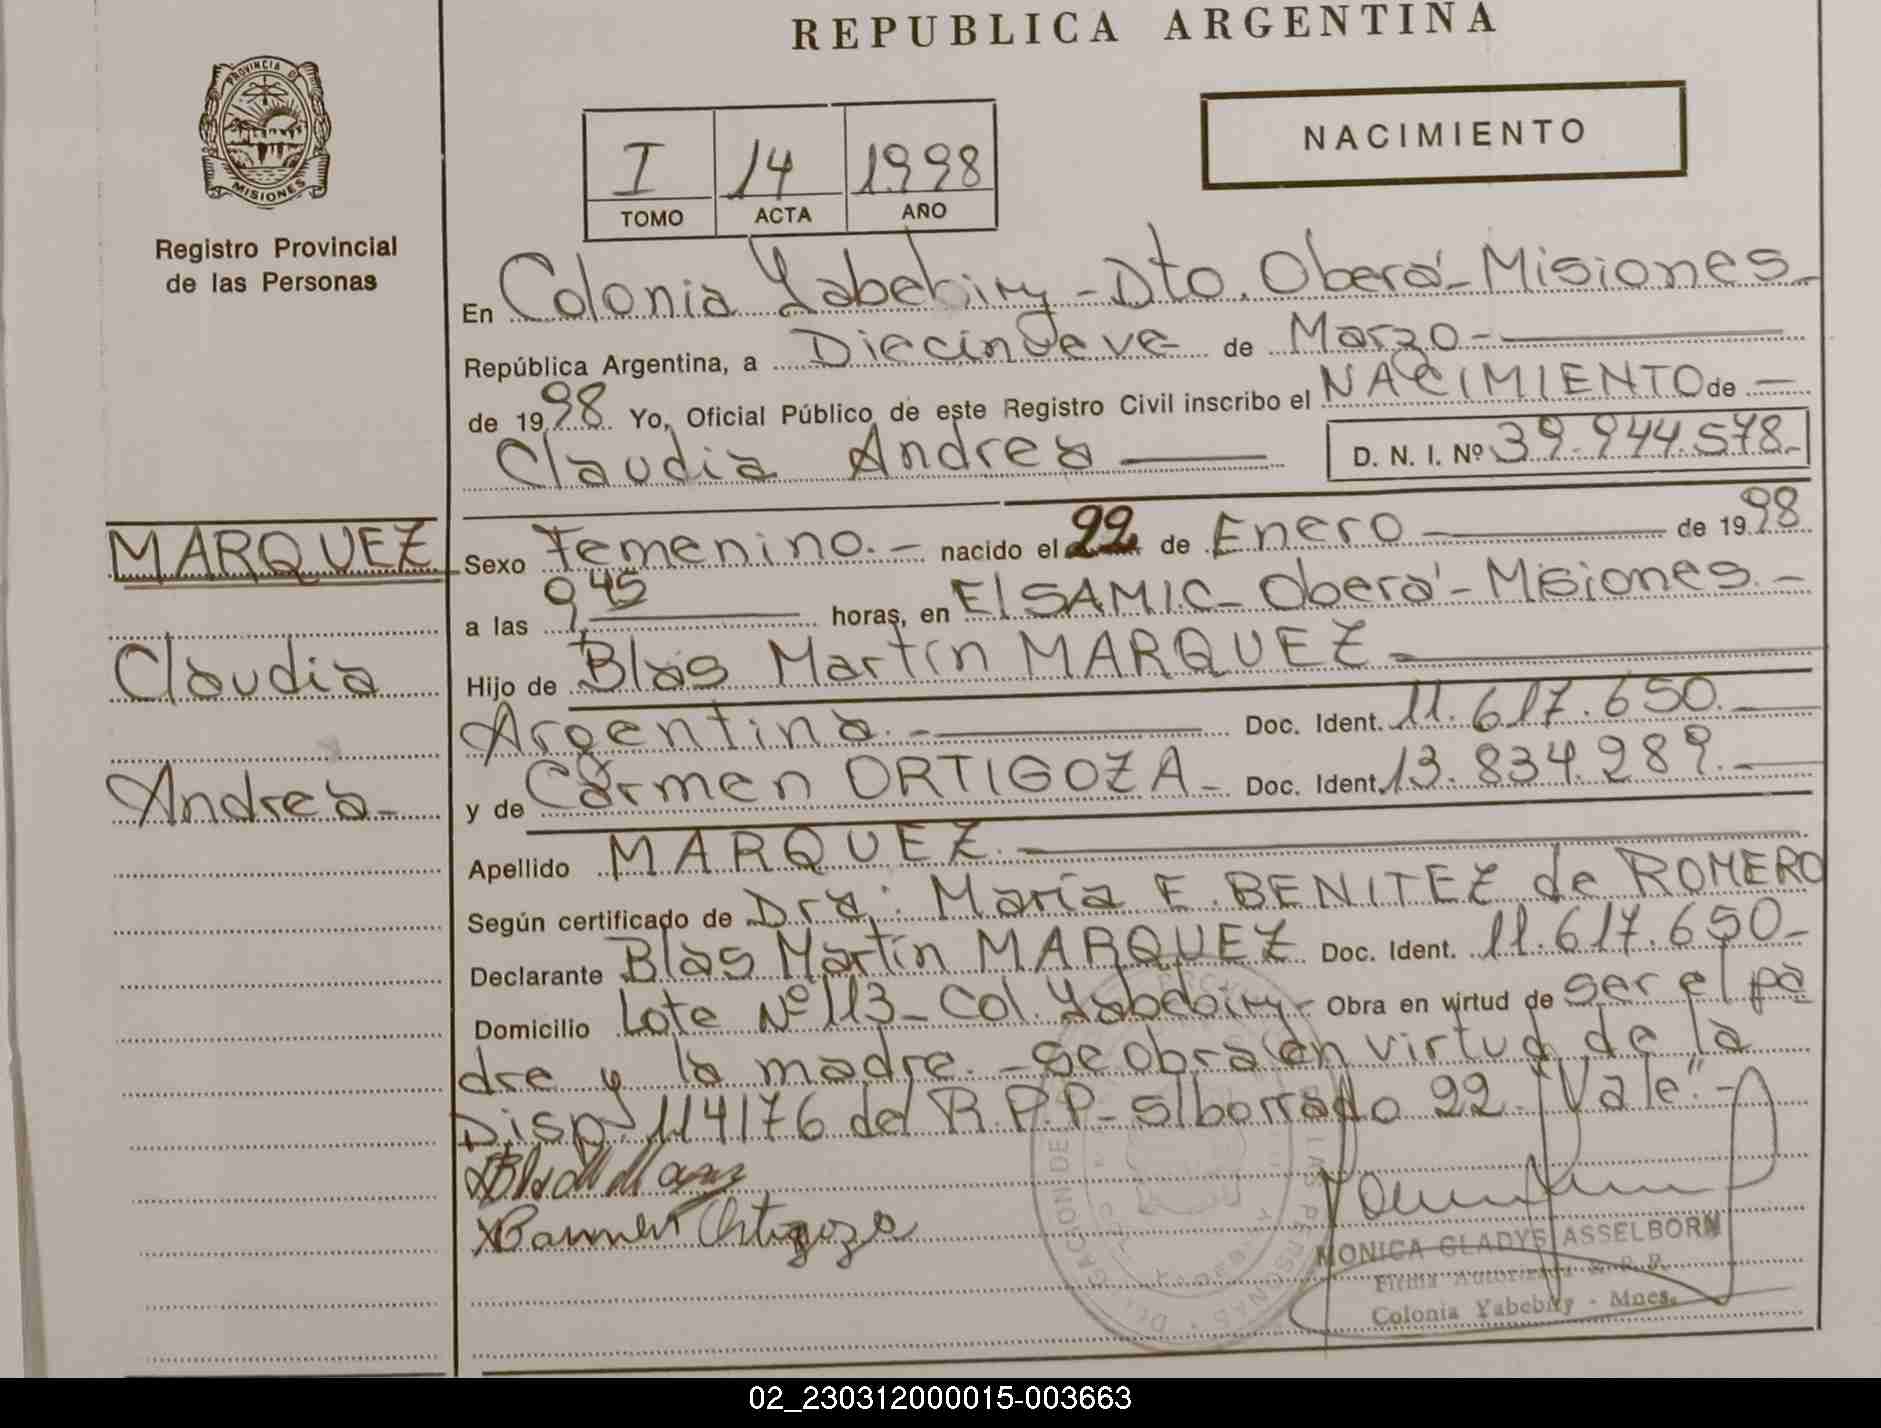 REPUBLICA ARGENTINA
PROVINCIA DE
MISIONES
Registro Provincial
de las Personas
I 14 1998
TOMO ACTA AÑO
NACIMIENTO
En Colonia Yabebiry - Dto. Oberá - Misiones
República Argentina, a Diecinueve de Marzo -
de 1998 Yo, Oficial Público de este Registro Civil inscribo el NACIMIENTO de -
Claudia Andrea D. N. I. Nº 39.944.578.-
MARQUEZ
Claudia
Andrea -
Sexo Femenino. - nacido el 22 de Enero de 1998
a las 9,45 horas, en El SAMIC - Oberá - Misiones. -
Hijo de Blas Martín MARQUEZ -
Argentina. - Doc. Ident. 11.617.650. -
y de Carmen ORTIGOZA - Doc. Ident. 13.834.289. -
Apellido MARQUEZ. -
Según certificado de Dra: María E. BENITEZ de ROMERO
Declarante Blas Martín MARQUEZ Doc. Ident. 11.617.650 -
Domicilio Lote Nº 113 - Col. Yabebiry - Obra en virtud de ser el pa
dre y la madre. - Se obra en virtud de la
Disp. 114/76 del R.P.P - s/borrado 22 "Vale". -
Carmen Ortigoza
MONICA GLADYS ASSELBORN
Firma Autorizada R. P. P.
Colonia Yabebiry - Mnes.
02_230312000015-003663